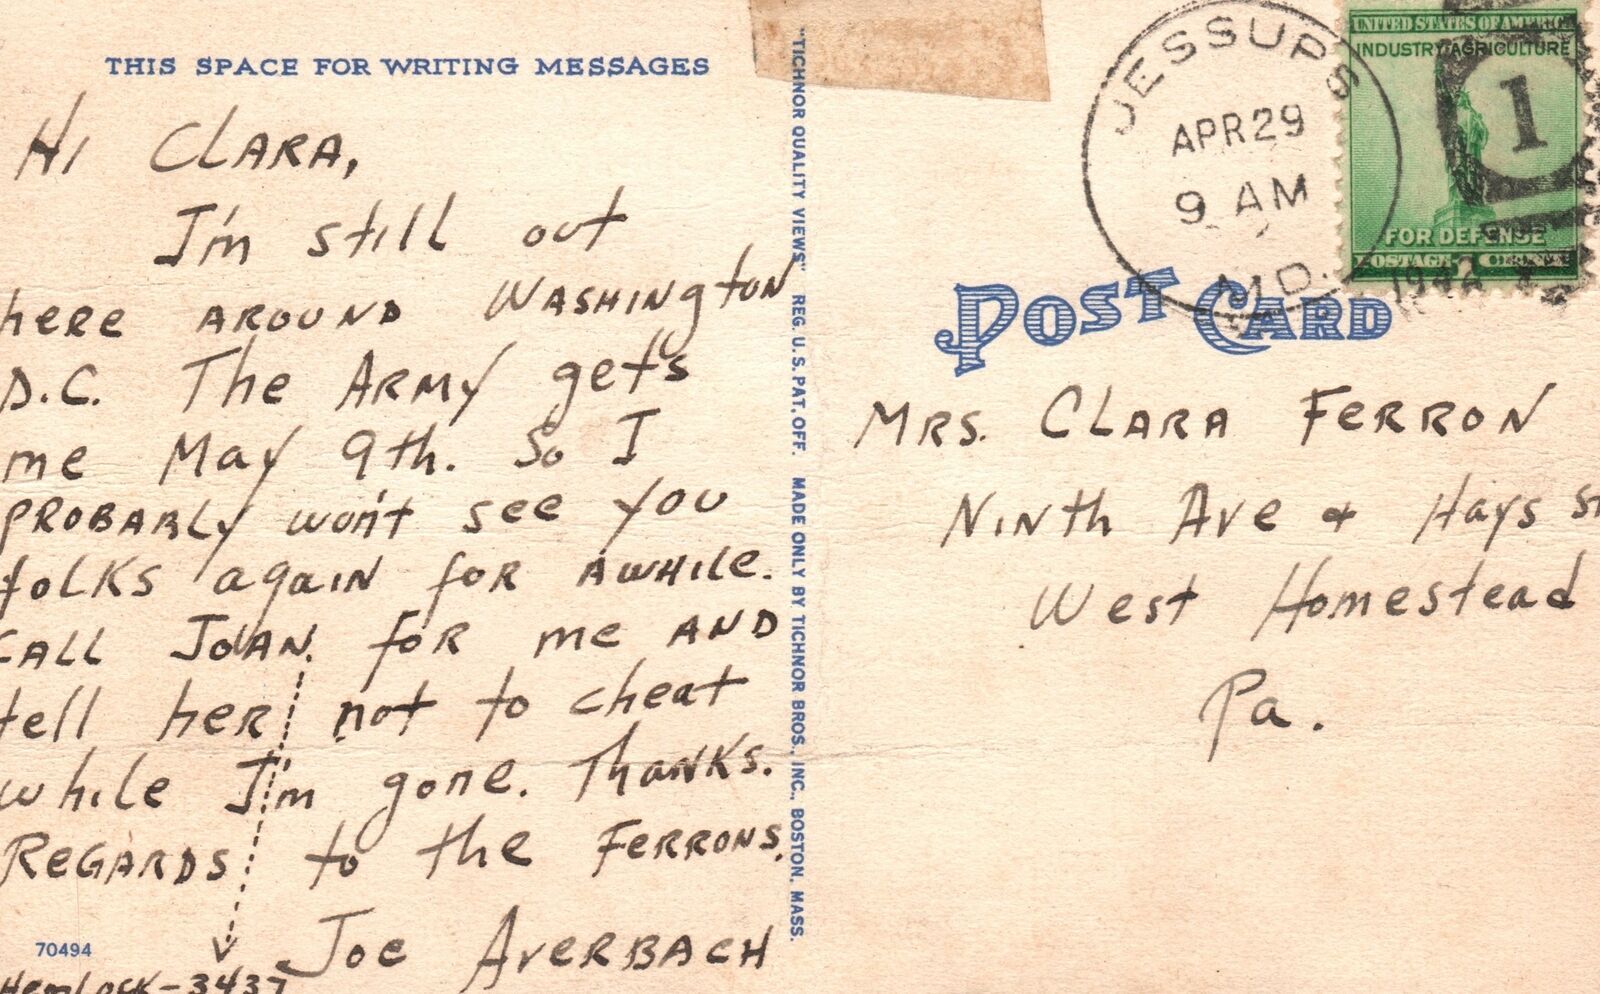 THIS SPACE FOR WRITING MESSAGES
Hi CLARA,
I'm still out
here AROUND WASHINgtoN
D.C. The ARMY gets
me May 9th. So I
PROBABLY won't see you
folks again for Awhile.
CALL JOAN. for me AND
tell her not to cheat
while I'm gone. Thanks.
REGARDS to the FERRONS.
Joe AVERBACH
70494
Hemlock-3437
"TICHNOR QUALITY VIEWS" REG. U.S. PAT. OFF. MADE ONLY BY TICHNOR BROS., INC., BOSTON, MASS.
JESSUPS
APR 29
9 AM
MD.
1942
UNITED STATES OF AMERICA
INDUSTRY AGRICULTURE
1
FOR DEFENSE
POSTAGE 1
POST CARD
MRS. CLARA FERRON
Ninth Ave & Hays St
West Homestead
Pa.